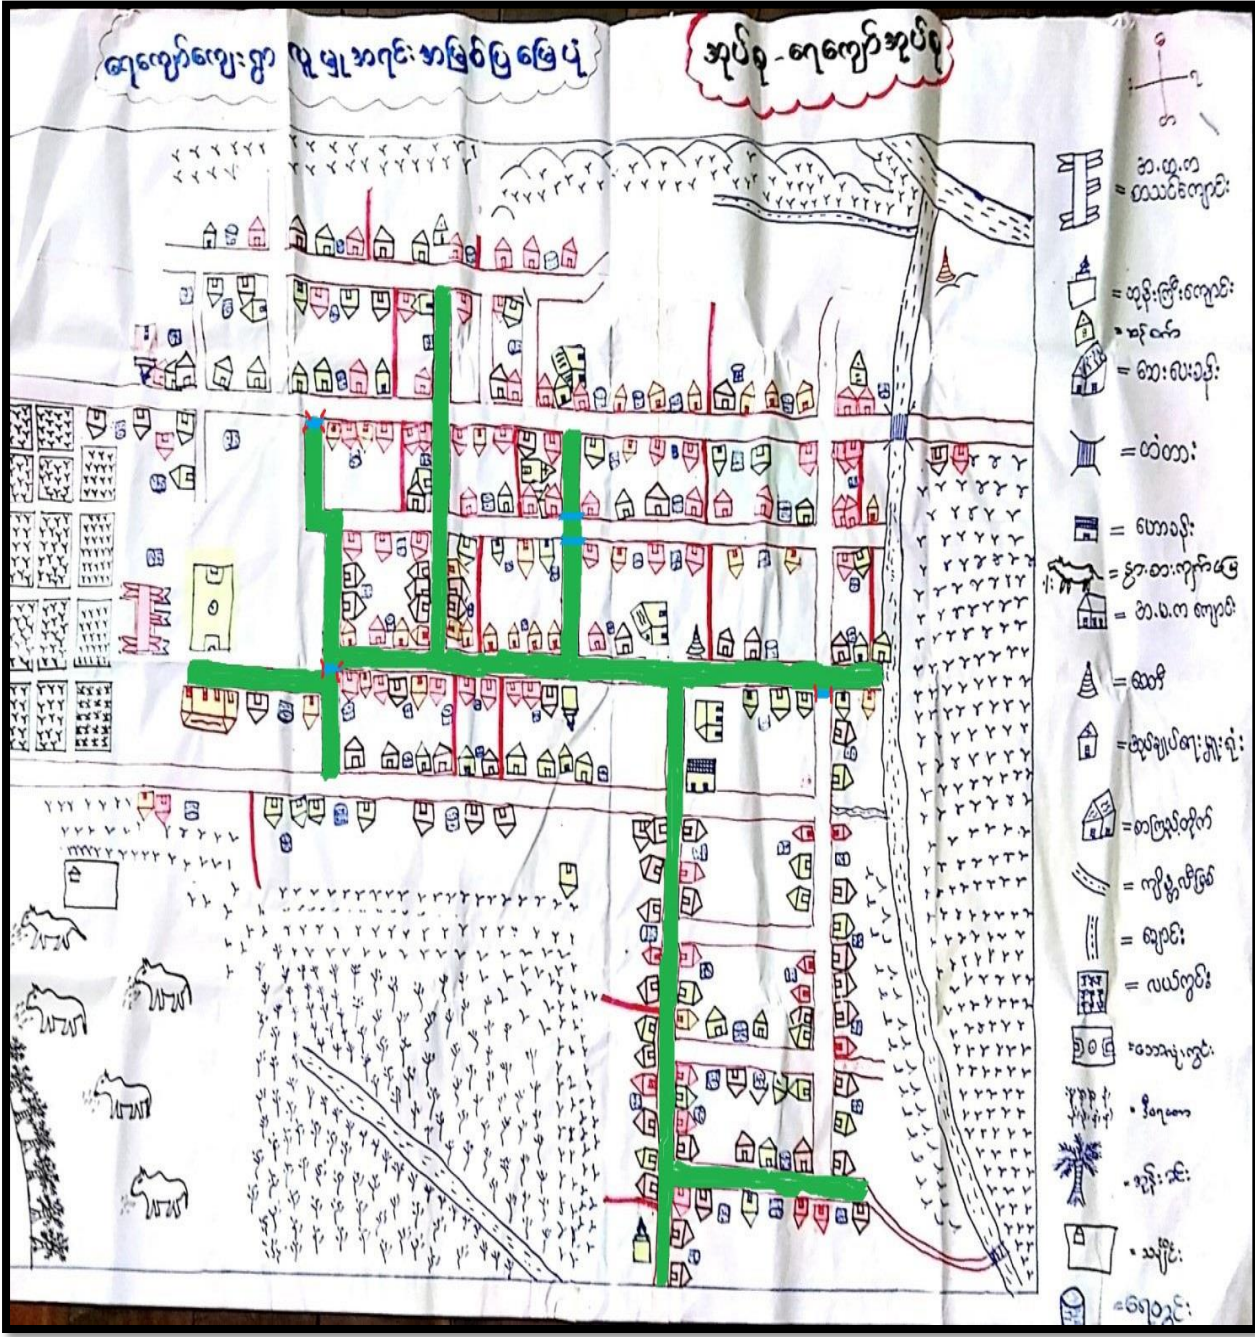 ရေကျော်ကျေးရွာ လူမှုအရင်းအမြစ်ပြမြေပုံ
အုပ်စု - ရေကျော်အုပ်စု
အ.ထ.က
= စာသင်ကျောင်း
= ဘုန်းကြီးကျောင်း
= ဆေးပေးခန်း
= တံတား
= ဟောခန်း
= နွားစားကျက်မြေ
= အ.မ.က ကျောင်း
= စေတီ
= အုပ်ချုပ်ရေးမှူးရုံး
= စာကြည့်တိုက်
= ချောင်း
= လယ်ကွင်း
= ဘောလုံးကွင်း
= ဒီရေတော
= အုန်းပင်း
= သင်္ချိုင်း
= ရေတွင်း